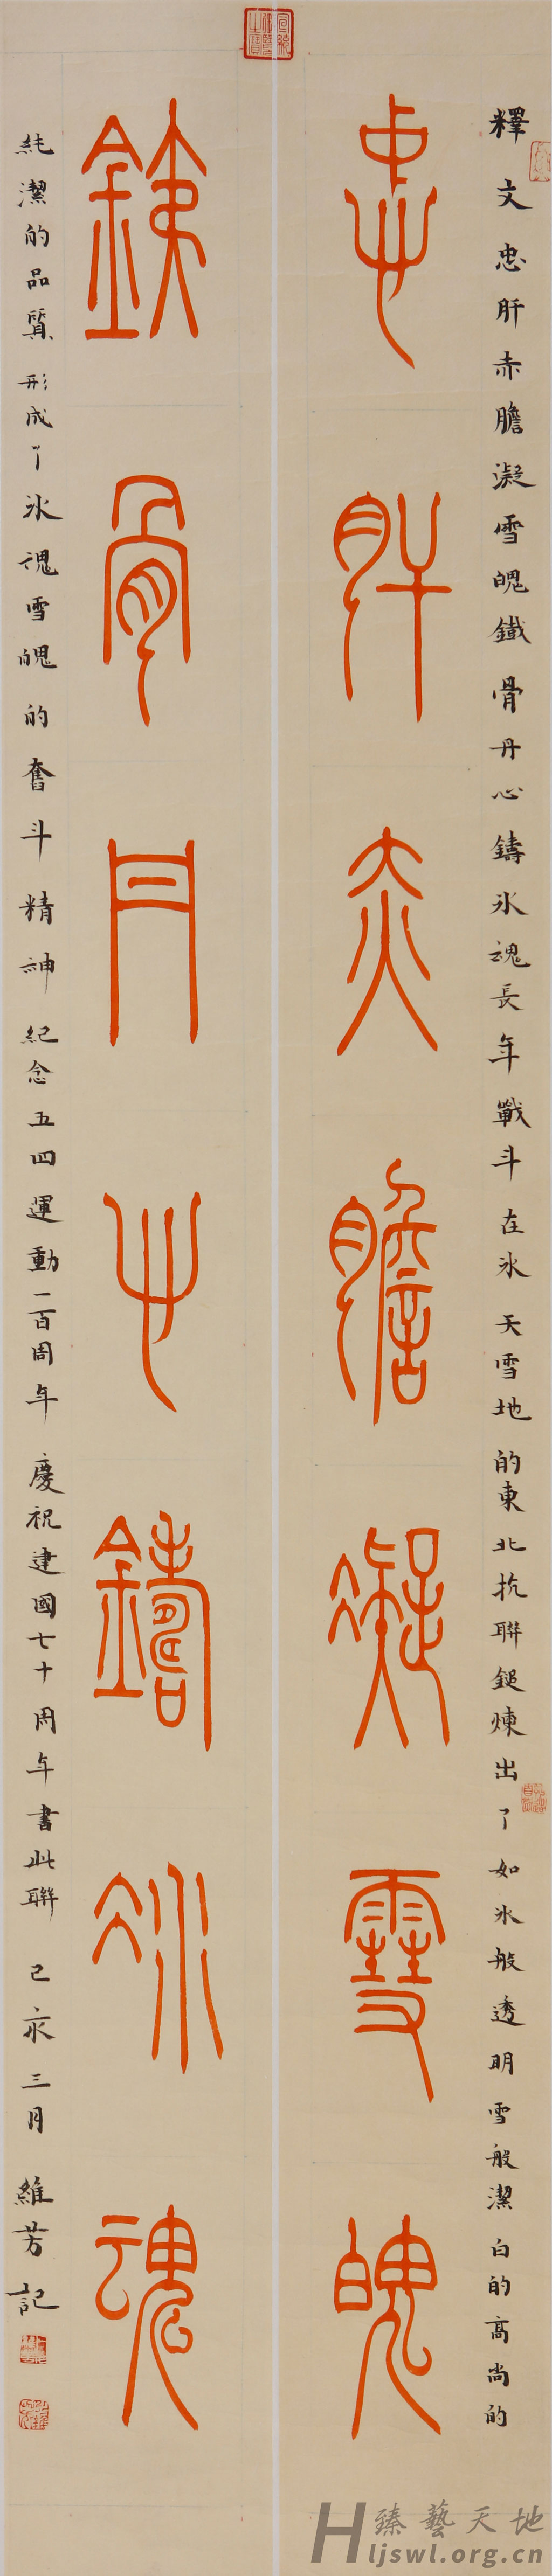 釋文忠肝赤膽凝雪魄鐵骨丹心鑄氷魂長年戰斗在氷天雪地的東北抗聯鎚煉出了如氷般透明雪般潔白的高尚的
忠肝赤膽凝雪魄
鐵骨丹心鑄冰魂
純潔的品質形成了氷魂雪魄的奮斗精神紀念五四運動一百周年慶祝建國七十周年書此聯己亥三月維芳記
臻藝天地
Hljswl.org.cn